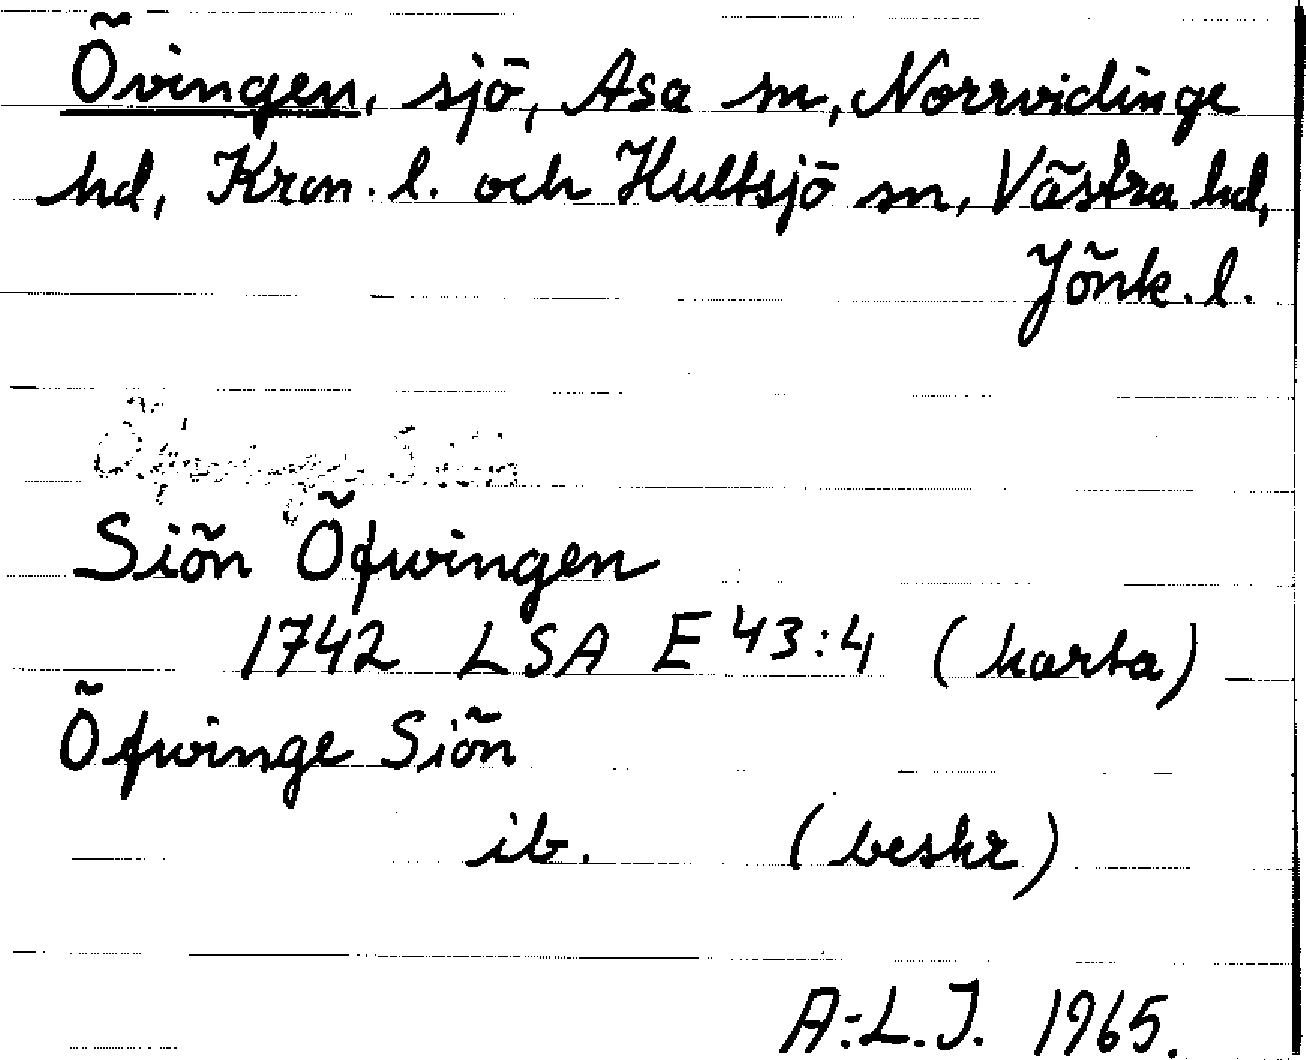 Övingen, sjö, Asa sn, Norrvidinge
hd, Kron. l. och Hultsjö sn, Västra hd,
Jönk. l.
Öfwinge Siön
Siön Öfwingen
1742 LSA E 43:4 (karta)
Öfwinge Siön
ib. (beskr)
A:L.J. 1965.